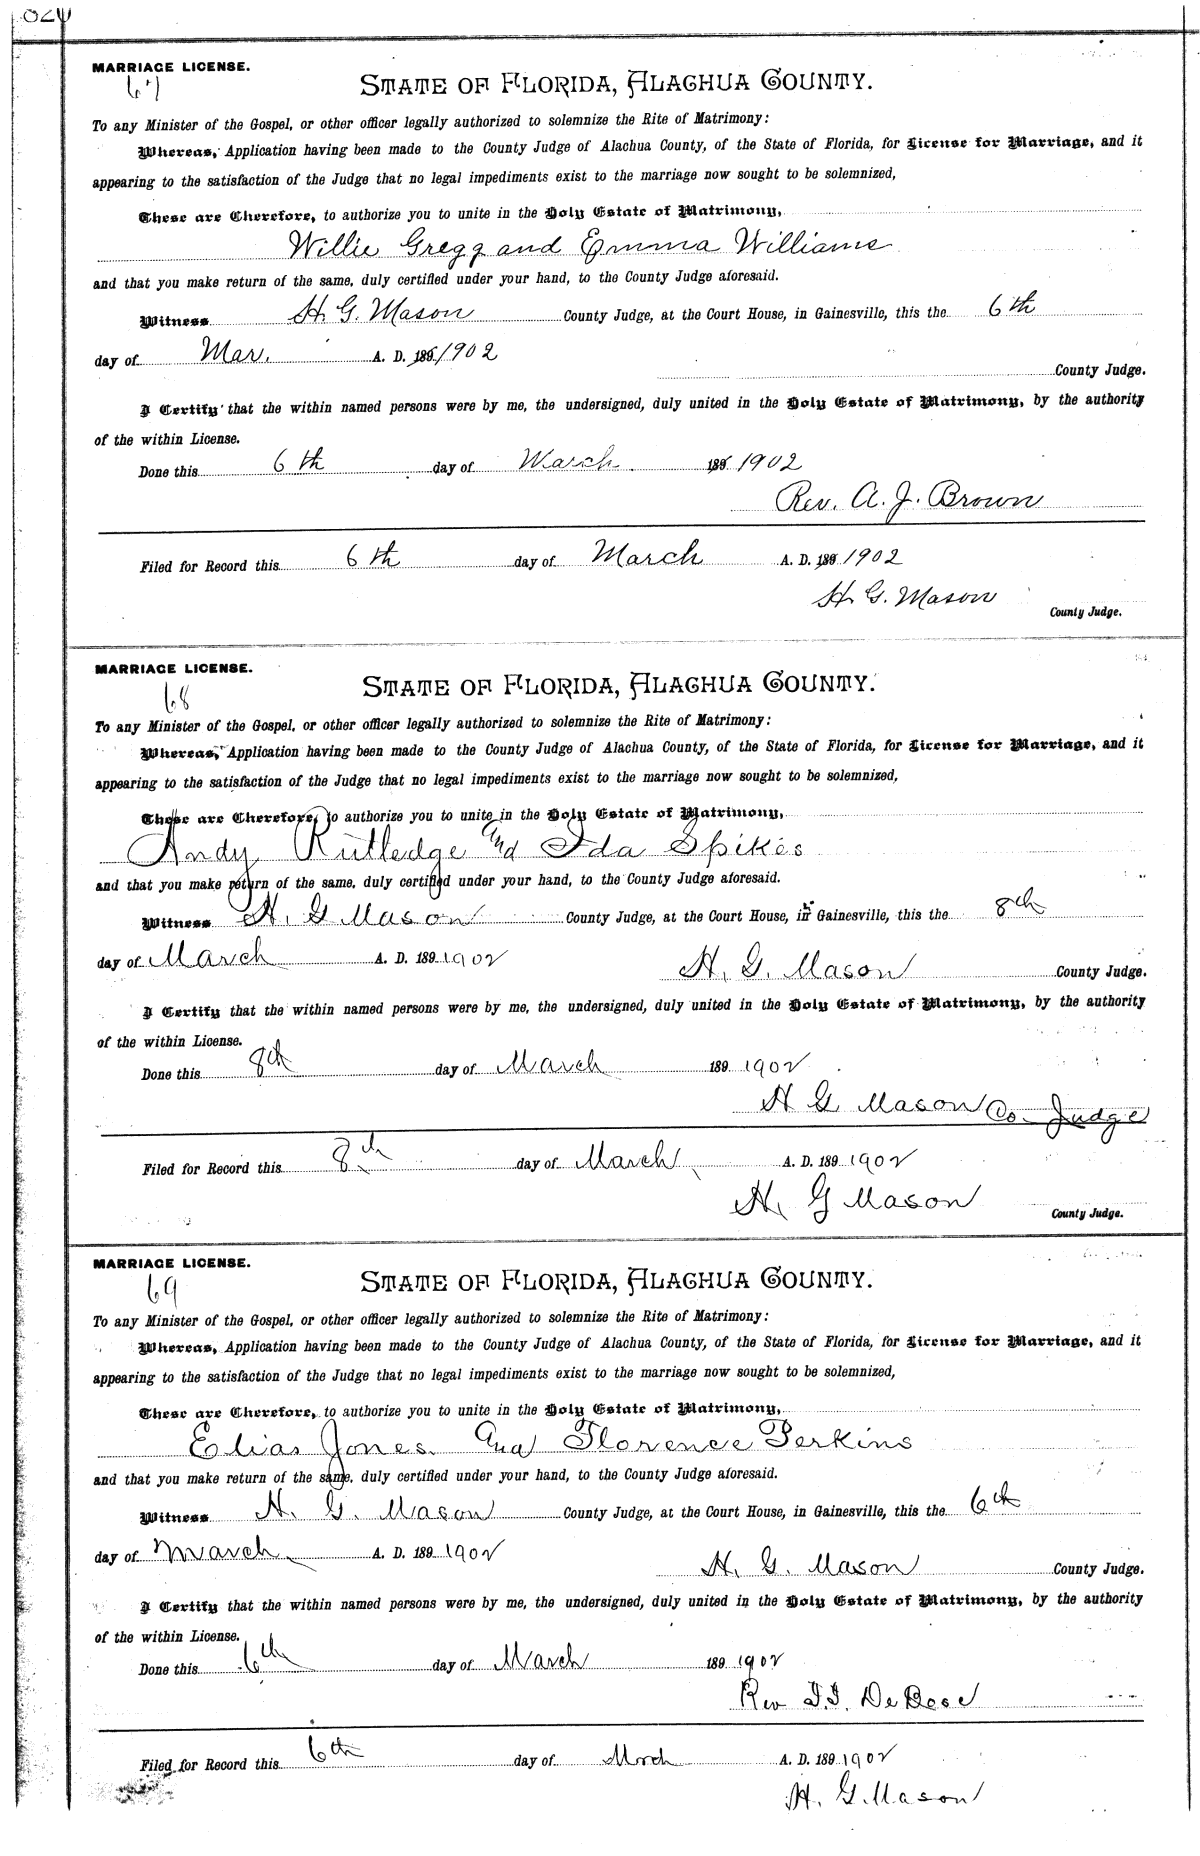 MARRIAGE LICENSE.
67
STATE OF FLORIDA, ALACHUA COUNTY.
To any Minister of the Gospel, or other officer legally authorized to solemnize the Rite of Matrimony:
Whereas, Application having been made to the County Judge of Alachua County, of the State of Florida, for License for Marriage, and it
appearing to the satisfaction of the Judge that no legal impediments exist to the marriage now sought to be solemnized,
These are Therefore, to authorize you to unite in the Holy Estate of Matrimony,
Willie Gregg and Emma Williams
and that you make return of the same, duly certified under your hand, to the County Judge aforesaid.
Witness H. G. Mason County Judge, at the Court House, in Gainesville, this the 6th
day of Mar. A. D. 189 1902
County Judge.
I Certify that the within named persons were by me, the undersigned, duly united in the Holy Estate of Matrimony, by the authority
of the within License.
Done this 6th day of March 189 1902
Rev. A. J. Brown
Filed for Record this 6th day of March A. D. 189 1902
H. G. Mason
County Judge.
MARRIAGE LICENSE.
68
STATE OF FLORIDA, ALACHUA COUNTY.
To any Minister of the Gospel, or other officer legally authorized to solemnize the Rite of Matrimony:
Whereas, Application having been made to the County Judge of Alachua County, of the State of Florida, for License for Marriage, and it
appearing to the satisfaction of the Judge that no legal impediments exist to the marriage now sought to be solemnized,
These are Therefore, to authorize you to unite in the Holy Estate of Matrimony,
Andy Rutledge and Ida Spikes
and that you make return of the same, duly certified under your hand, to the County Judge aforesaid.
Witness H. G Mason County Judge, at the Court House, in Gainesville, this the 8th
day of March A. D. 189 1902
H. G. Mason County Judge.
I Certify that the within named persons were by me, the undersigned, duly united in the Holy Estate of Matrimony, by the authority
of the within License.
Done this 8th day of March 189 1902
H G Mason Co Judge
Filed for Record this 8th day of March A. D. 189 1902
H. G Mason
County Judge.
MARRIAGE LICENSE.
69
STATE OF FLORIDA, ALACHUA COUNTY.
To any Minister of the Gospel, or other officer legally authorized to solemnize the Rite of Matrimony:
Whereas, Application having been made to the County Judge of Alachua County, of the State of Florida, for License for Marriage, and it
appearing to the satisfaction of the Judge that no legal impediments exist to the marriage now sought to be solemnized,
These are Therefore, to authorize you to unite in the Holy Estate of Matrimony,
Elias Jones and Florence Perkins
and that you make return of the same, duly certified under your hand, to the County Judge aforesaid.
Witness H. G. Mason County Judge, at the Court House, in Gainesville, this the 6th
day of March A. D. 189 1902
H. G. Mason County Judge.
I Certify that the within named persons were by me, the undersigned, duly united in the Holy Estate of Matrimony, by the authority
of the within License.
Done this 6th day of March 189 1902
Rev
Filed for Record this 6th day of March A. D. 189 1902
H. G. Mason